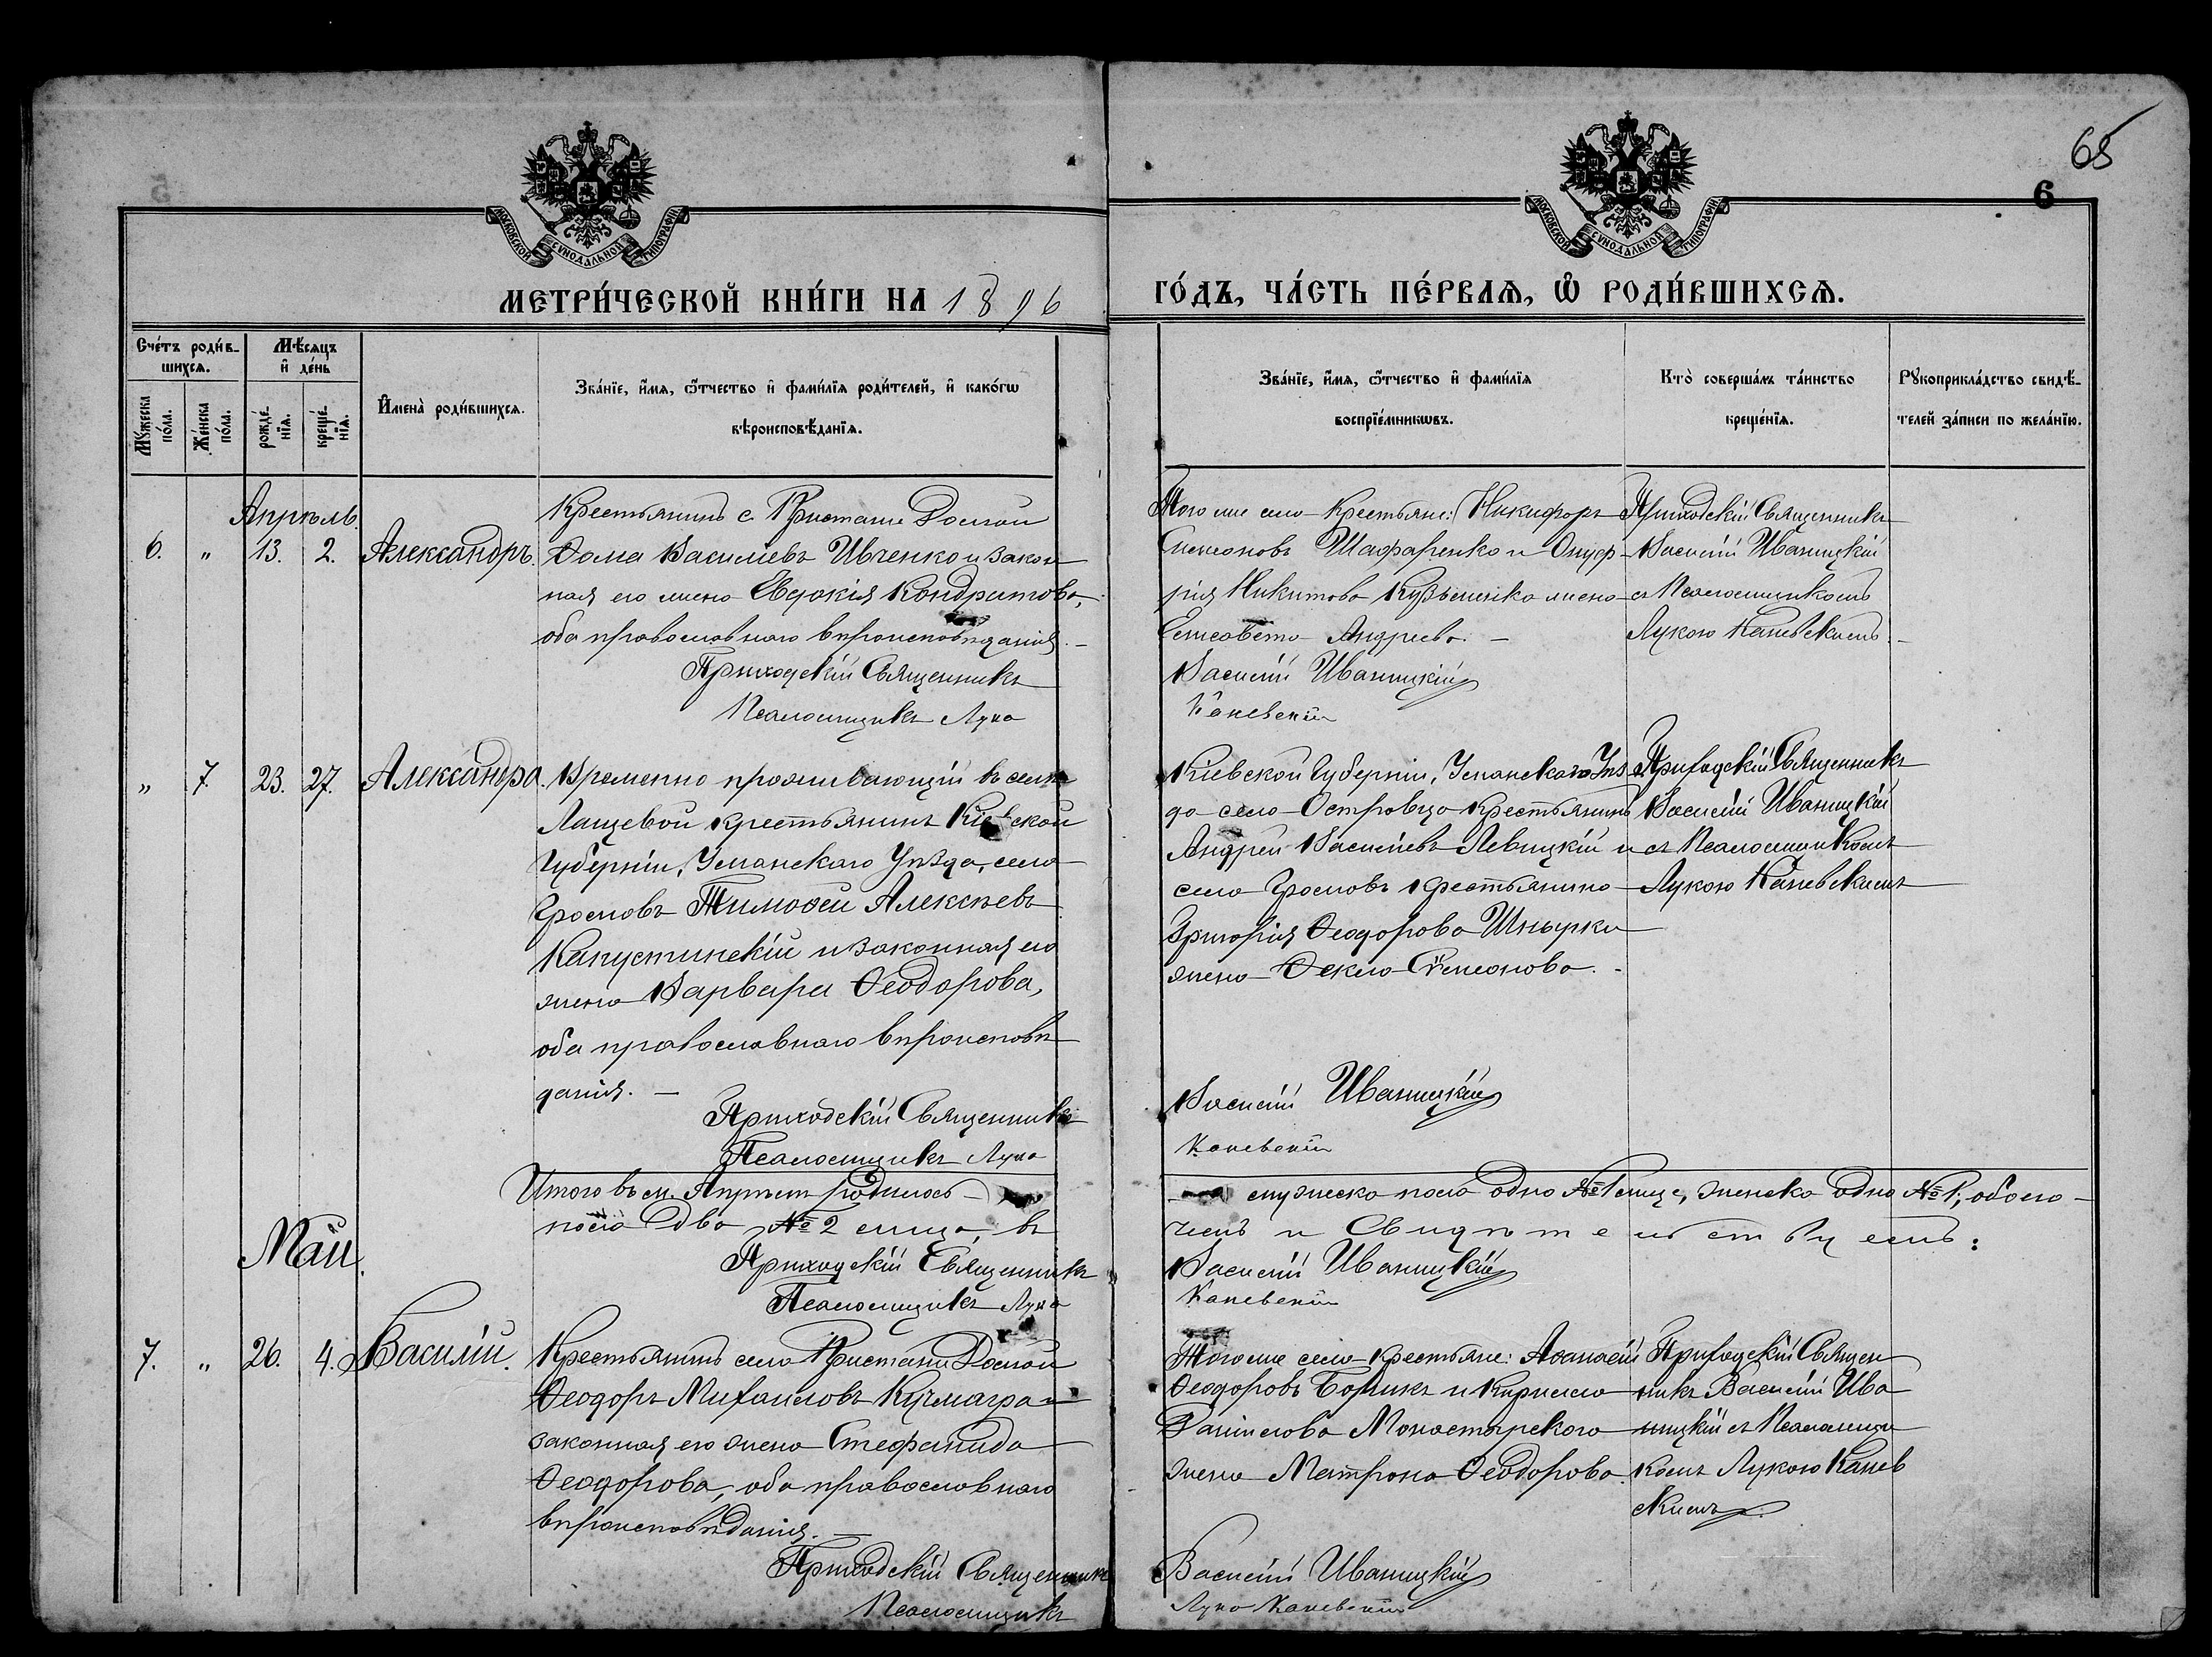 65
6
МОСКОВСКОЙ СѴНОДАЛЬНОЙ ТИПОГРАФІИ
МОСКОВСКОЙ СѴНОДАЛЬНОЙ ТИПОГРАФІИ
МЕТРИ́ЧЕСКОЙ КНИ́ГИ НА 1896
ГО́ДЪ, ЧА́СТЬ ПЕ́РВАѦ, Ѡ҆ РОДИ́ВШИХСѦ.
Сче́тъ роди́в-
шихсѧ.
Мꙋ́жеска по́ла.
Же́нска по́ла.
Мѣ́сѧцъ
и҆ де́нь
рожде́-
нїѧ.
креще́-
нїѧ.
И҆мена̀ роди́вшихсѧ.
Зва́нїе, и҆́мѧ, ѻ҆́тчество и҆ фами́лїѧ роди́телей, и҆ како́гѡ
вѣроисповѣ́данїѧ.
Зва́нїе, и҆́мѧ, ѻ҆́тчество и҆ фами́лїѧ
воспрїе́мникѡвъ.
Кто̀ соверша́лъ та́инство
креще́нїѧ.
Рꙋкоприкла́дство свидѣ́-
телей за́писи по жела́нїю.
Апрѣль.
6. „ 13. 2. Александръ.
Крестьянинъ с. Пристани Долгой
Ѳома Василіевъ Ивченко и закон
ная его жена Евдокія Кондратова,
оба православнаго вѣроисповѣданія. –
Приходскій Священникъ
Псаломщикъ Лука
Того же села крестьяне: Никифоръ
Симеоновъ Шафаренко и Онуф-
рія Никитова Кузьменка жена
Елисавета Андреева. –
Василій Иваницкій
Каневскій
Приходскій Священникъ
Василій Иваницкій
съ Псаломщикомъ
Лукою Каневскимъ
„ 7. 23. 27. Александра.
Временно проживающій въ селѣ
Лащевой крестьянинъ Кіевской
Губерніи, Уманскаго Уѣзда, села
Громовъ Тимоѳей Алексѣевъ
Капустинскій и законная его
жена Варвара Ѳеодорова,
оба православнаго вѣроисповѣ
данія. –
Приходскій Священникъ
Псаломщикъ Лука
Кіевской Губерніи, Уманскаго Уѣз
да села Островца крестьянинъ
Андрей Василіевъ Левицкій и
села Громовъ крестьянина
Григорія Ѳеодорова Шнырки
жена Ѳекла Симеонова. –
Василій Иваницкій
Каневскій
Приходскій Священникъ
Василій Иваницкій
съ Псаломщикомъ
Лукою Каневскимъ
Итого въ м. Апрѣлѣ родилось –
мужеска пола одно № 1 лице, женска одно № 1; обоего
пола два № 2 лица, въ
чемъ и Свидѣтельствуемъ:
Приходскій Священникъ
Василій Иваницкій
Псаломщикъ Лука
Каневскій
Май.
7. „ 26. 4. Василій.
Крестьянинъ села Пристани Долгой
Ѳеодоръ Михаиловъ Кучмагра и
законная его жена Стефанида
Ѳеодорова, оба православнаго
вѣроисповѣданія. –
Приходскій Священникъ
Псаломщикъ
Того же села крестьяне: Аѳанасій
Ѳеодоровъ и Кирилла
Даніилова Монастырскаго
жена Матрона Ѳеодорова.
Василій Иваницкій
Лука Каневскій
Приходскій Священ
никъ Василій Ива
ницкій съ Псаломщи
комъ Лукою Канев
скимъ.